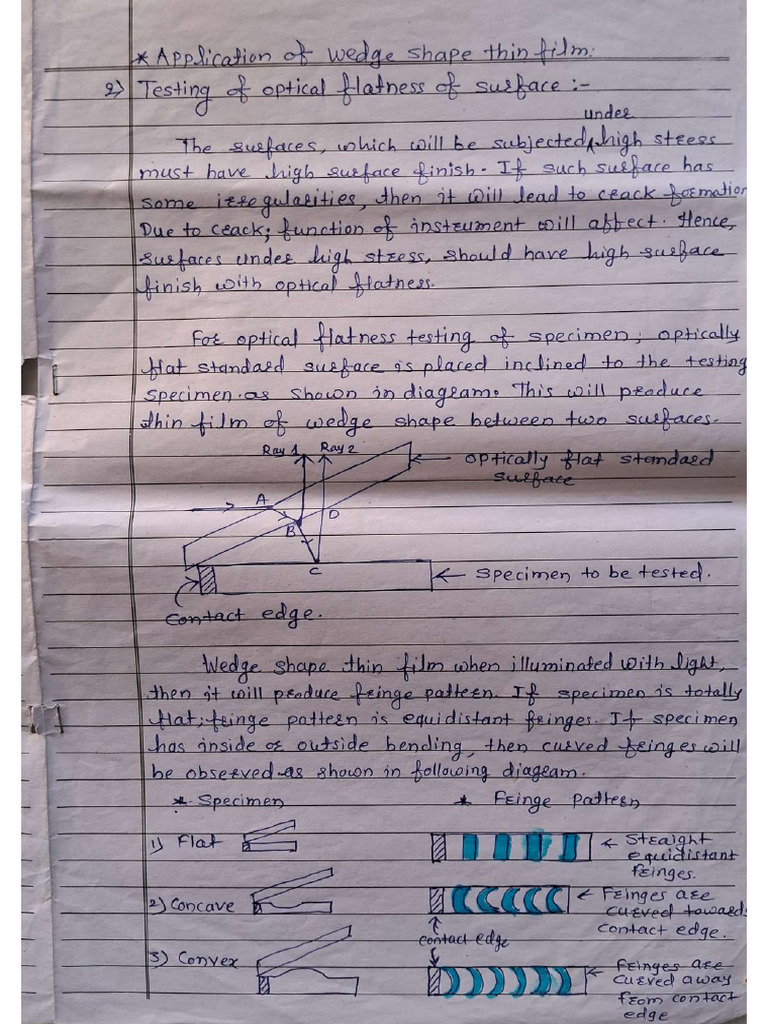 * Application of wedge shape thin film:
2) Testing of optical flatness of surface :-
under
The surfaces, which will be subjected ^ high stress
must have high surface finish. If such surface has
some irregularities, then it will lead to crack formation
Due to crack; function of instrument will affect. Hence,
surfaces under high stress, should have high surface
finish with optical flatness.
For optical flatness testing of specimen; optically
flat standard surface is placed inclined to the testing
specimen as shown in diagram. This will produce
thin film of wedge shape between two surfaces.
Ray 1 Ray 2
optically flat standard
surface
A
B
D
C
Specimen to be tested.
Contact edge.
Wedge shape thin film when illuminated with light,
then it will produce fringe pattern. If specimen is totally
flat; fringe pattern is equidistant fringes. If specimen
has inside or outside bending, then curved fringes will
be observed as shown in following diagram.
* Specimen * Fringe pattern
1) Flat
Straight
equidistant
fringes.
2) Concave
Fringes are
curved toward
contact edge.
contact edge
3) Convex
Fringes are
curved away
from contact
edge